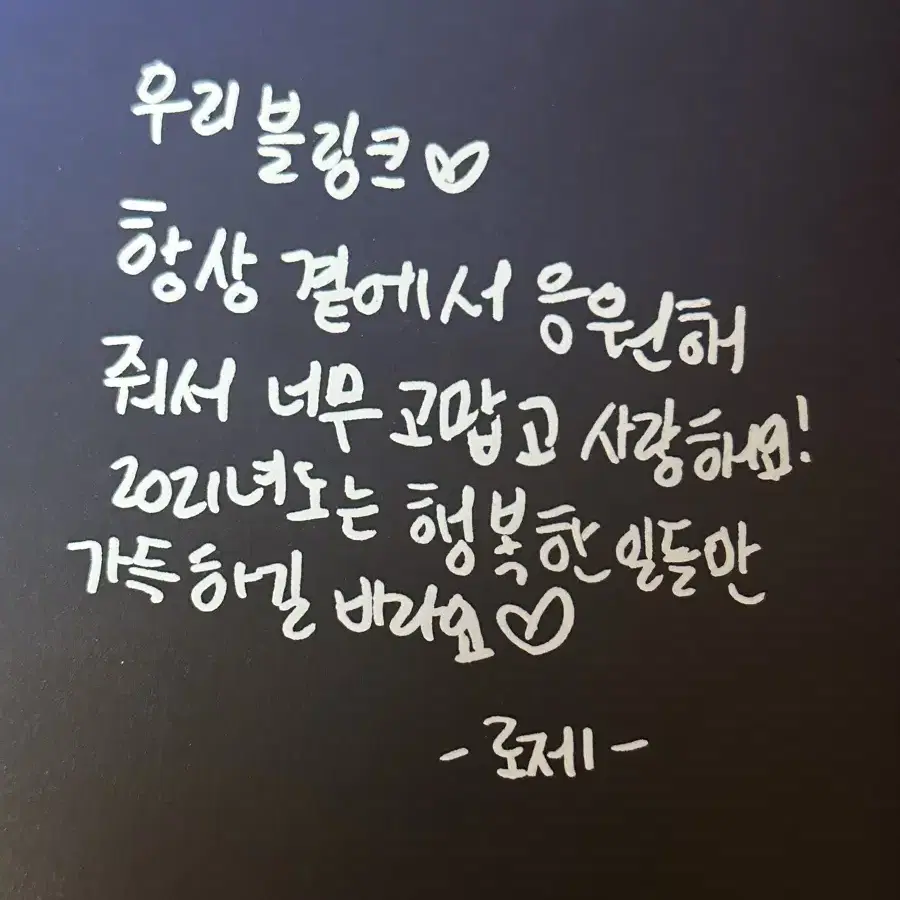 우리 블링크♡
항상 곁에서 응원해
줘서 너무 고맙고 사랑해요!
2021년도는 행복한 일들만
가득하길 바라요♡
-로제-